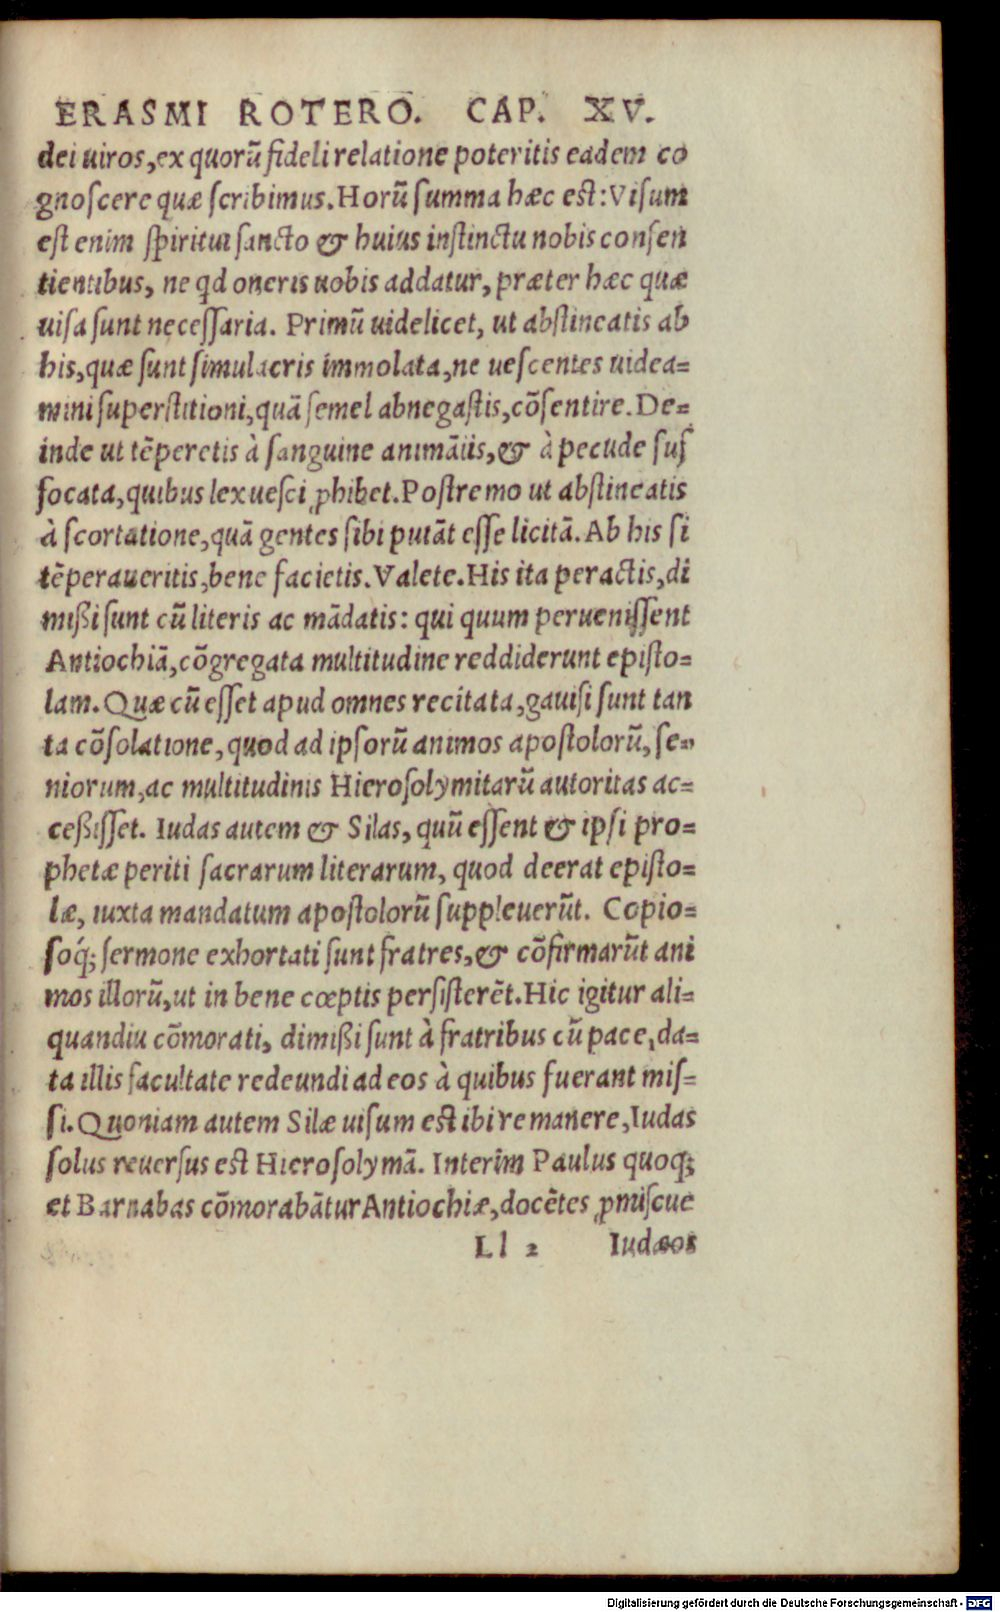 ERASMI ROTERO. CAP. XV.
dei uiros, ex quorũ fideli relatione poteritis eadem co
gnoscere quæ scribimus. Horũ summa hæc est: Visum
est enim spiritui sancto & huius instinctu nobis consen
tientibus, ne qd oneris uobis addatur, præter hæc quæ
uisa sunt necessaria. Primũ uidelicet, ut abstineatis ab
his, quæ sunt simulacris immolata, ne uescentes uidea=
mini superstitioni, quã semel abnegastis, cõsentire. De=
inde ut tẽperetis à sanguine animãtis, & à pecude suf
focata, quibus lex uesci ꝓhibet. Postremo ut abstineatis
à scortatione, quã gentes sibi putãt esse licitã. Ab his si
tẽperaueritis, bene facietis. Valete. His ita peractis, di
mißi sunt cũ literis ac mãdatis: qui quum peruenissent
Antiochiã, cõgregata multitudine reddiderunt episto=
lam. Quæ cũ esset apud omnes recitata, gauisi sunt tan
ta cõsolatione, quod ad ipsorũ animos apostolorũ, se=
niorum, ac multitudinis Hierosolymitarũ autoritas ac=
ceßisset. Iudas autem & Silas, quũ essent & ipsi pro=
phetæ periti sacrarum literarum, quod deerat episto=
læ, iuxta mandatum apostolorũ suppleuerũt. Copio=
soq́; sermone exhortati sunt fratres, & cõfirmarũt ani
mos illorũ, ut in bene cœptis persisterẽt. Hic igitur ali=
quandiu cõmorati, dimißi sunt à fratribus cũ pace, da=
ta illis facultate redeundi ad eos à quibus fuerant mis=
si. Quoniam autem Silæ uisum est ibi remanere, Iudas
solus reuersus est Hierosolymã. Interim Paulus quoq;
et Barnabas cõmorabãtur Antiochiæ, docẽtes ꝓmiscue
Ll 2 Iudæos
Digitalisierung gefördert durch die Deutsche Forschungsgemeinschaft - DFG